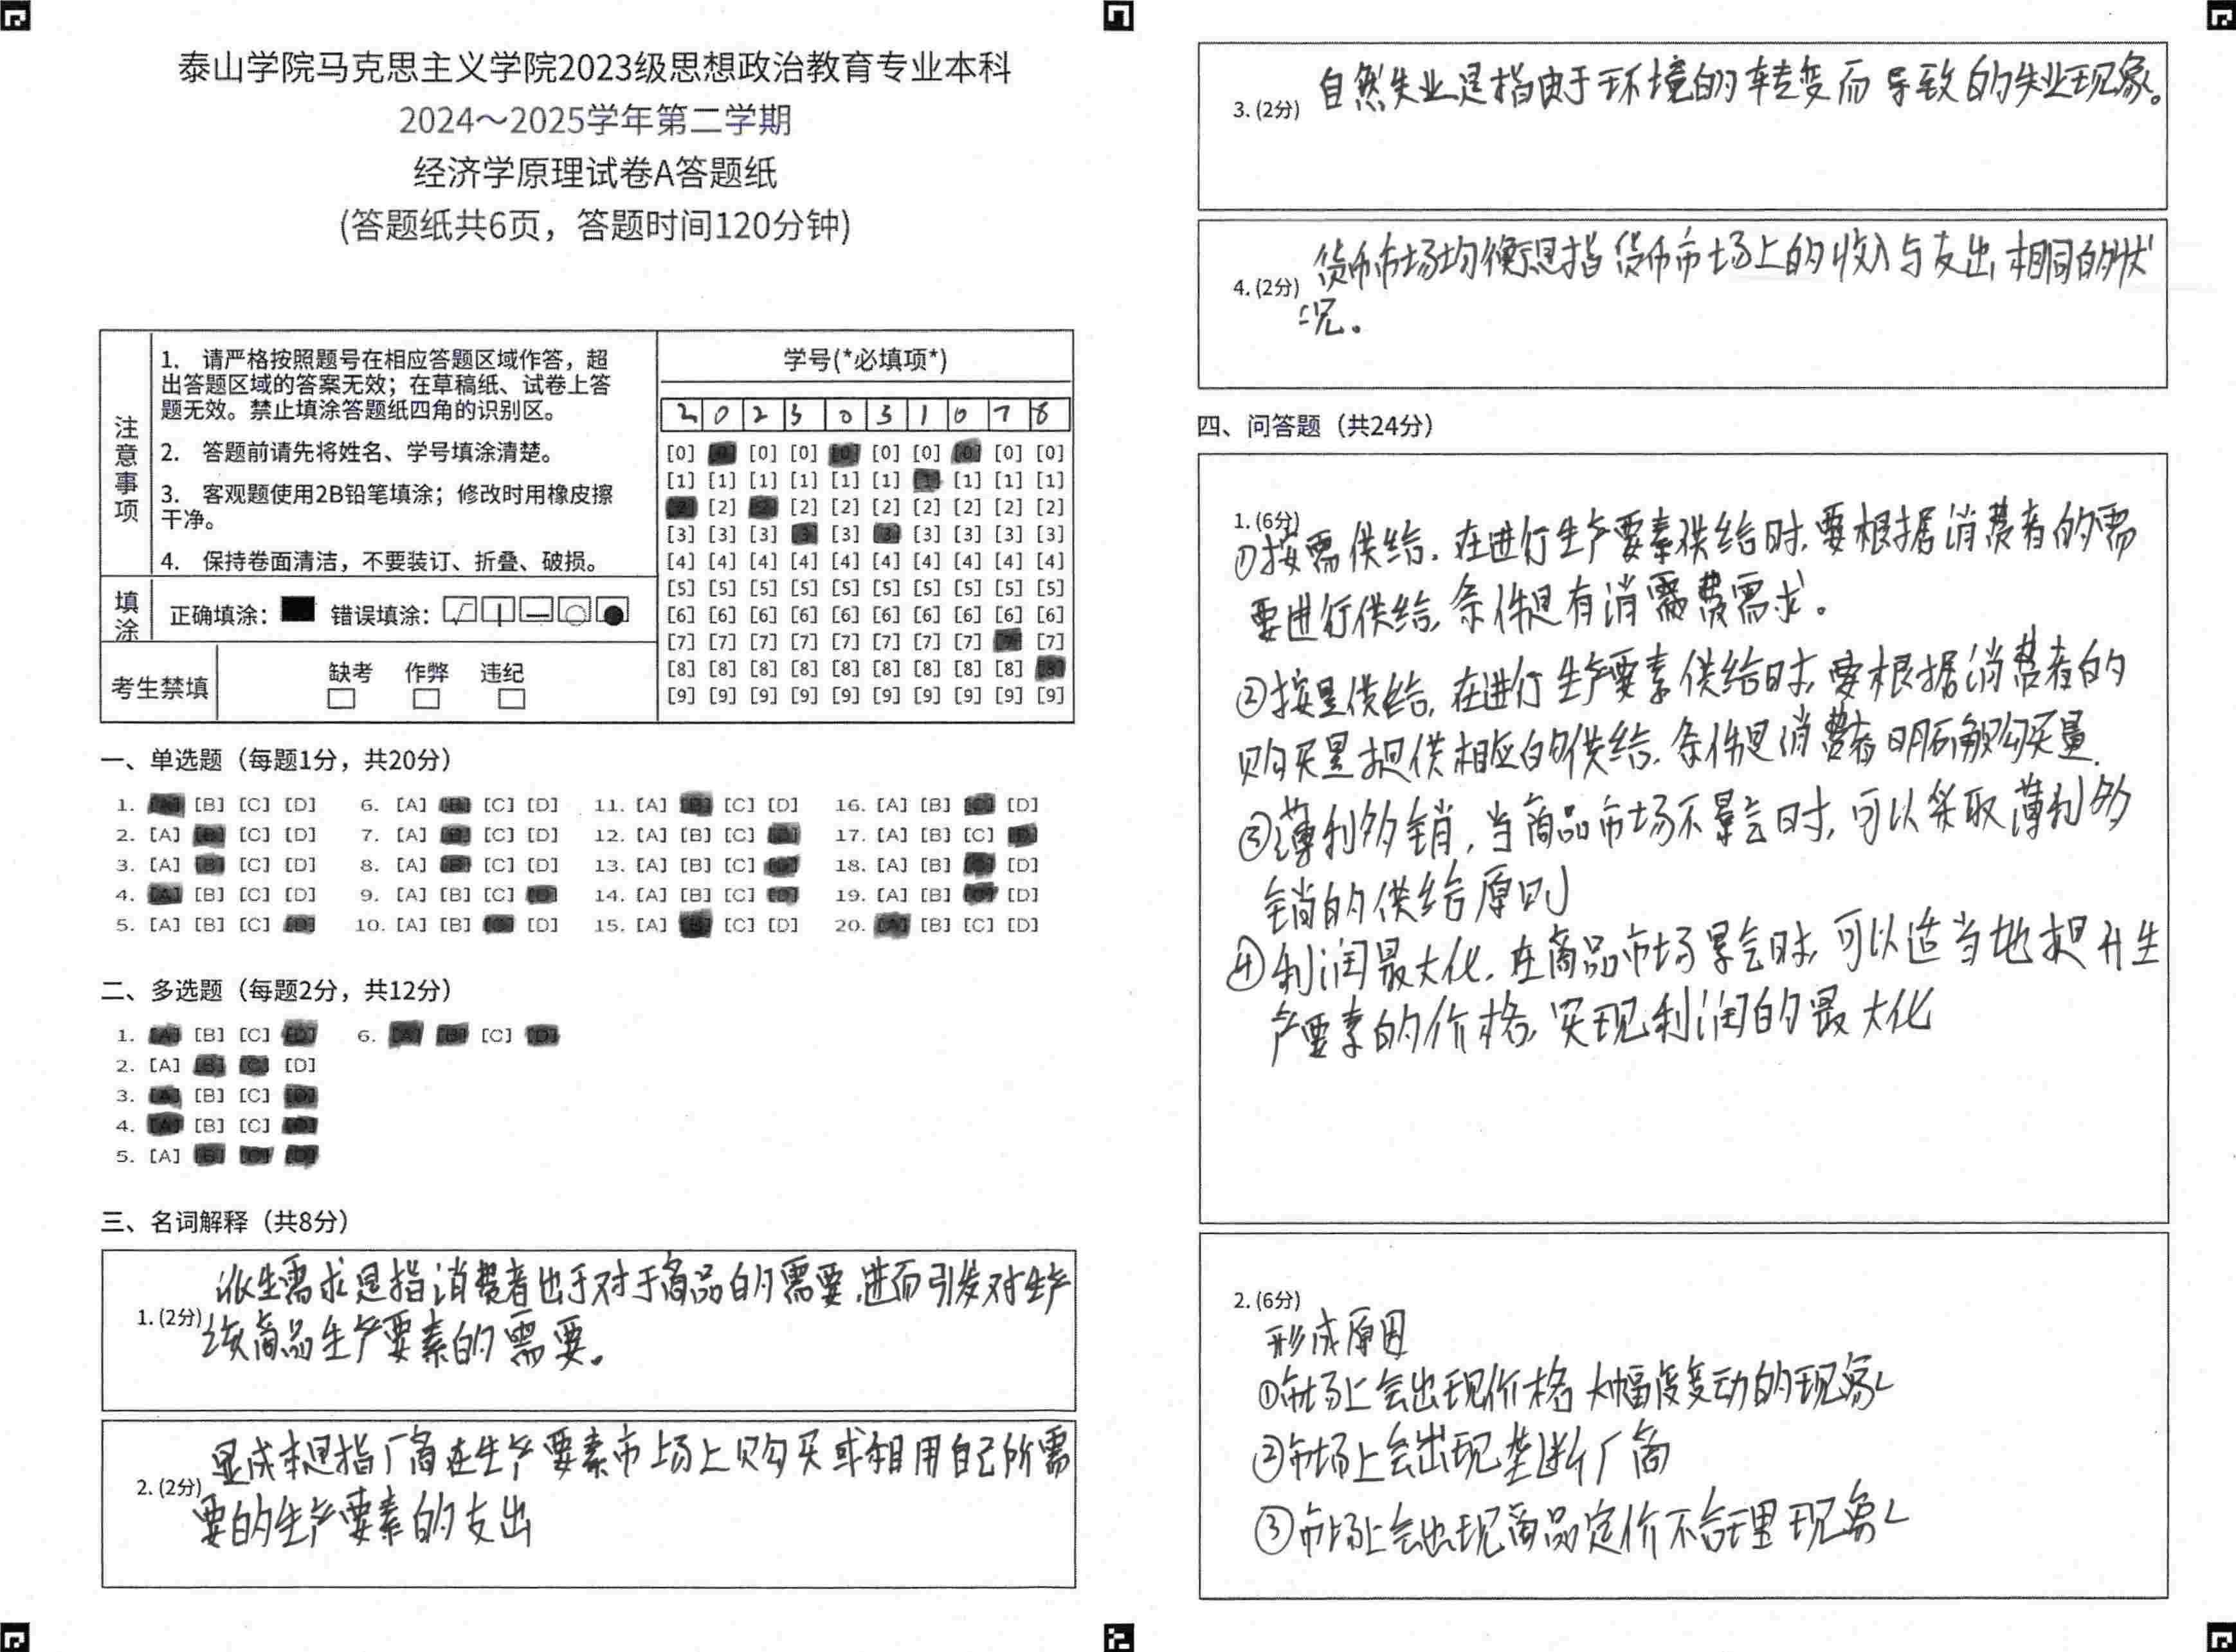 泰山学院马克思主义学院2023级思想政治教育专业本科
2024～2025学年第二学期
经济学原理试卷A答题纸
(答题纸共6页，答题时间120分钟)
注意事项
1. 请严格按照题号在相应答题区域作答，超
出答题区域的答案无效；在草稿纸、试卷上答
题无效。禁止填涂答题纸四角的识别区。
2. 答题前请先将姓名、学号填涂清楚。
3. 客观题使用2B铅笔填涂；修改时用橡皮擦
干净。
4. 保持卷面清洁，不要装订、折叠、破损。
填涂
正确填涂： 错误填涂：
考生禁填
缺考 作弊 违纪
学号(*必填项*)
2 0 2 3 0 3 1 0 7 8
[0] [0] [0] [0] [0] [0] [0] [0] [0] [0]
[1] [1] [1] [1] [1] [1] [1] [1] [1] [1]
[2] [2] [2] [2] [2] [2] [2] [2] [2] [2]
[3] [3] [3] [3] [3] [3] [3] [3] [3] [3]
[4] [4] [4] [4] [4] [4] [4] [4] [4] [4]
[5] [5] [5] [5] [5] [5] [5] [5] [5] [5]
[6] [6] [6] [6] [6] [6] [6] [6] [6] [6]
[7] [7] [7] [7] [7] [7] [7] [7] [7] [7]
[8] [8] [8] [8] [8] [8] [8] [8] [8] [8]
[9] [9] [9] [9] [9] [9] [9] [9] [9] [9]
一、单选题（每题1分，共20分）
1. [A] [B] [C] [D] 6. [A] [B] [C] [D] 11. [A] [B] [C] [D] 16. [A] [B] [C] [D]
2. [A] [B] [C] [D] 7. [A] [B] [C] [D] 12. [A] [B] [C] [D] 17. [A] [B] [C] [D]
3. [A] [B] [C] [D] 8. [A] [B] [C] [D] 13. [A] [B] [C] [D] 18. [A] [B] [C] [D]
4. [A] [B] [C] [D] 9. [A] [B] [C] [D] 14. [A] [B] [C] [D] 19. [A] [B] [C] [D]
5. [A] [B] [C] [D] 10. [A] [B] [C] [D] 15. [A] [B] [C] [D] 20. [A] [B] [C] [D]
二、多选题（每题2分，共12分）
1. [A] [B] [C] [D] 6. [A] [B] [C] [D]
2. [A] [B] [C] [D]
3. [A] [B] [C] [D]
4. [A] [B] [C] [D]
5. [A] [B] [C] [D]
三、名词解释（共8分）
1.(2分) 派生需求是指消费者出于对于商品的需要，进而引发对生产
该商品生产要素的需要。
2.(2分) 显成本是指厂商在生产要素市场上购买或租用自己所需
要的生产要素的支出
3.(2分) 自然失业是指由于环境的转变而导致的失业现象。
4.(2分) 货币市场均衡是指货币市场上的收入与支出相同的状
况。
四、问答题（共24分）
1.(6分)
①按需供给，在进行生产要素供给时，要根据消费者的需
要进行供给，条件是有消费需求。
②按量供给，在进行生产要素供给时，要根据消费者的
购买量提供相应的供给，条件是消费者明确购买量.
③薄利多销，当商品市场不景气时，可以采取薄利多
销的供给原则
④利润最大化，在商品市场景气时，可以适当地提升生
产要素的价格，实现利润的最大化
2.(6分)
形成原因
①市场上会出现价格大幅度变动的现象
②市场上会出现垄断厂商
③市场上会出现商品定价不合理现象